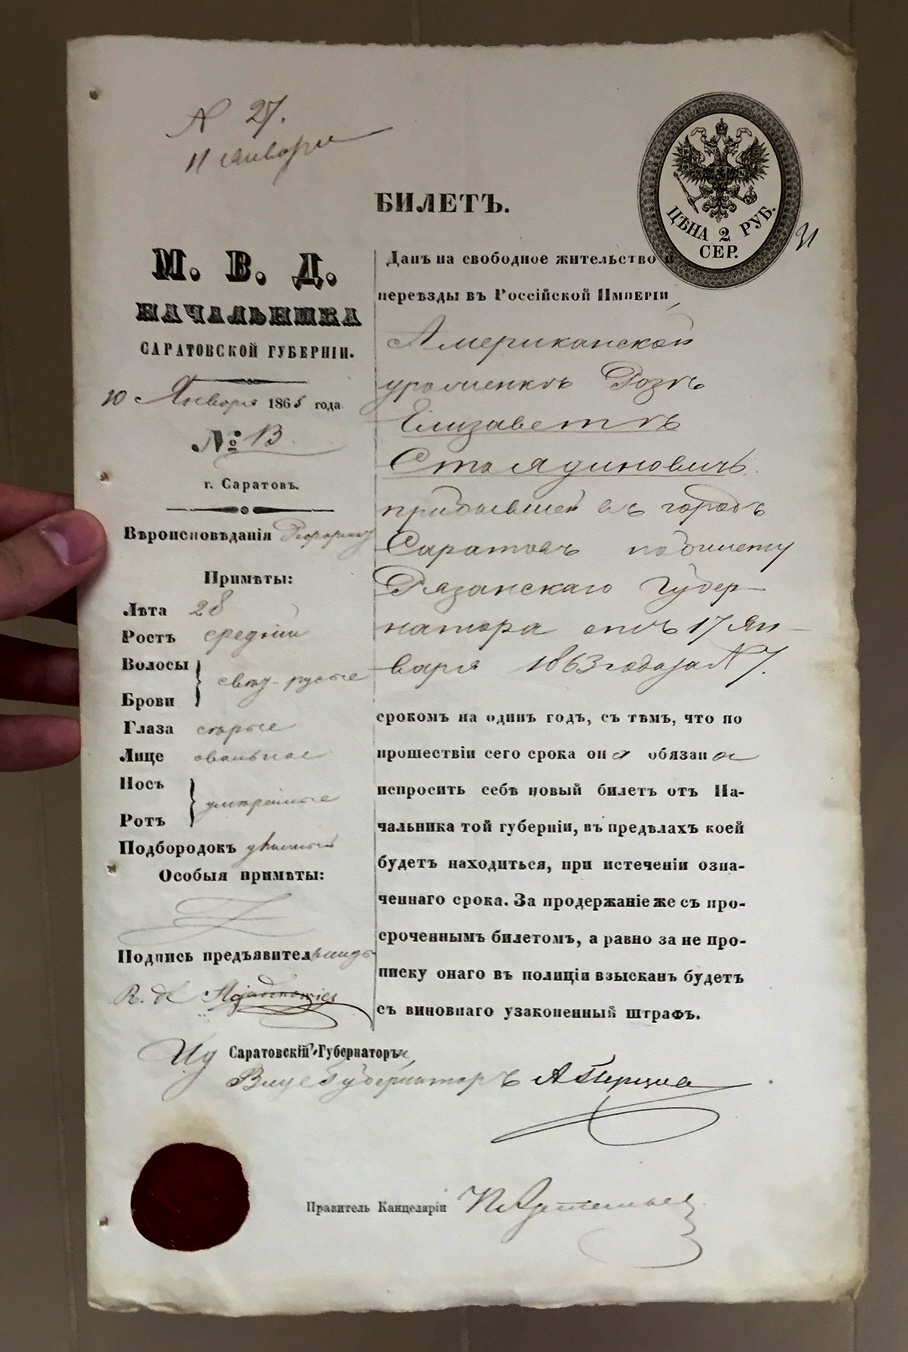 № 27.
11 января
БИЛЕТЪ.
ЦѢНА 2 РУБ.
СЕР.
М. В. Д.
НАЧАЛЬНИКА
САРАТОВСКОЙ ГУБЕРНІИ.
10 Января 1865 года
№ 13
г. Саратовъ.
Вѣроисповѣданія
Примѣты:
Лѣта 28
Ростъ средній
Волосы
Брови
свѣт-русые
Глаза сѣрые
Лице овальное
Носъ
Ротъ
умѣренные
Подбородокъ
Особыя примѣты:
Подпись предъявител
R. de
Данъ на свободное жительство и
переѣзды въ Россійской Имперіи,
Американской
уроженкѣ Розѣ
Елизаветѣ
Стоядиновичъ
прибывшей въ городъ
Саратовъ по билету
Рязанскаго Губер-
натора отъ 17 Ян-
варя 1863 года за № 7.
срокомъ на одинъ годъ, съ тѣмъ, что по
прошествіи сего срока она обязана
испросить себѣ новый билетъ отъ На-
чальника той губерніи, въ предѣлахъ коей
будетъ находиться, при истеченіи озна-
ченнаго срока. За продержаніе же съ про-
сроченнымъ билетомъ, а равно за не про-
писку онаго въ полиціи взысканъ будетъ
съ виновнаго узаконенный штрафъ.
Саратовскій Губернаторъ,
Вице Губернаторъ
Правитель Канцеляріи